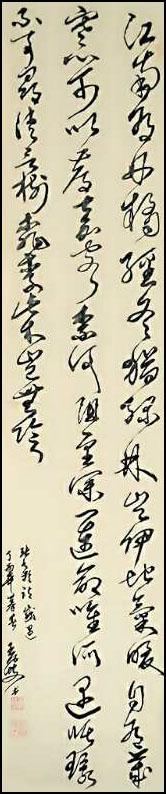 江南有丹橘經冬猶綠林豈伊地氣暖自有歲
寒心可以薦嘉客奈何阻重深運命唯所遇循環
不可尋徒言樹桃李此木豈無陰
張九齡詩感遇